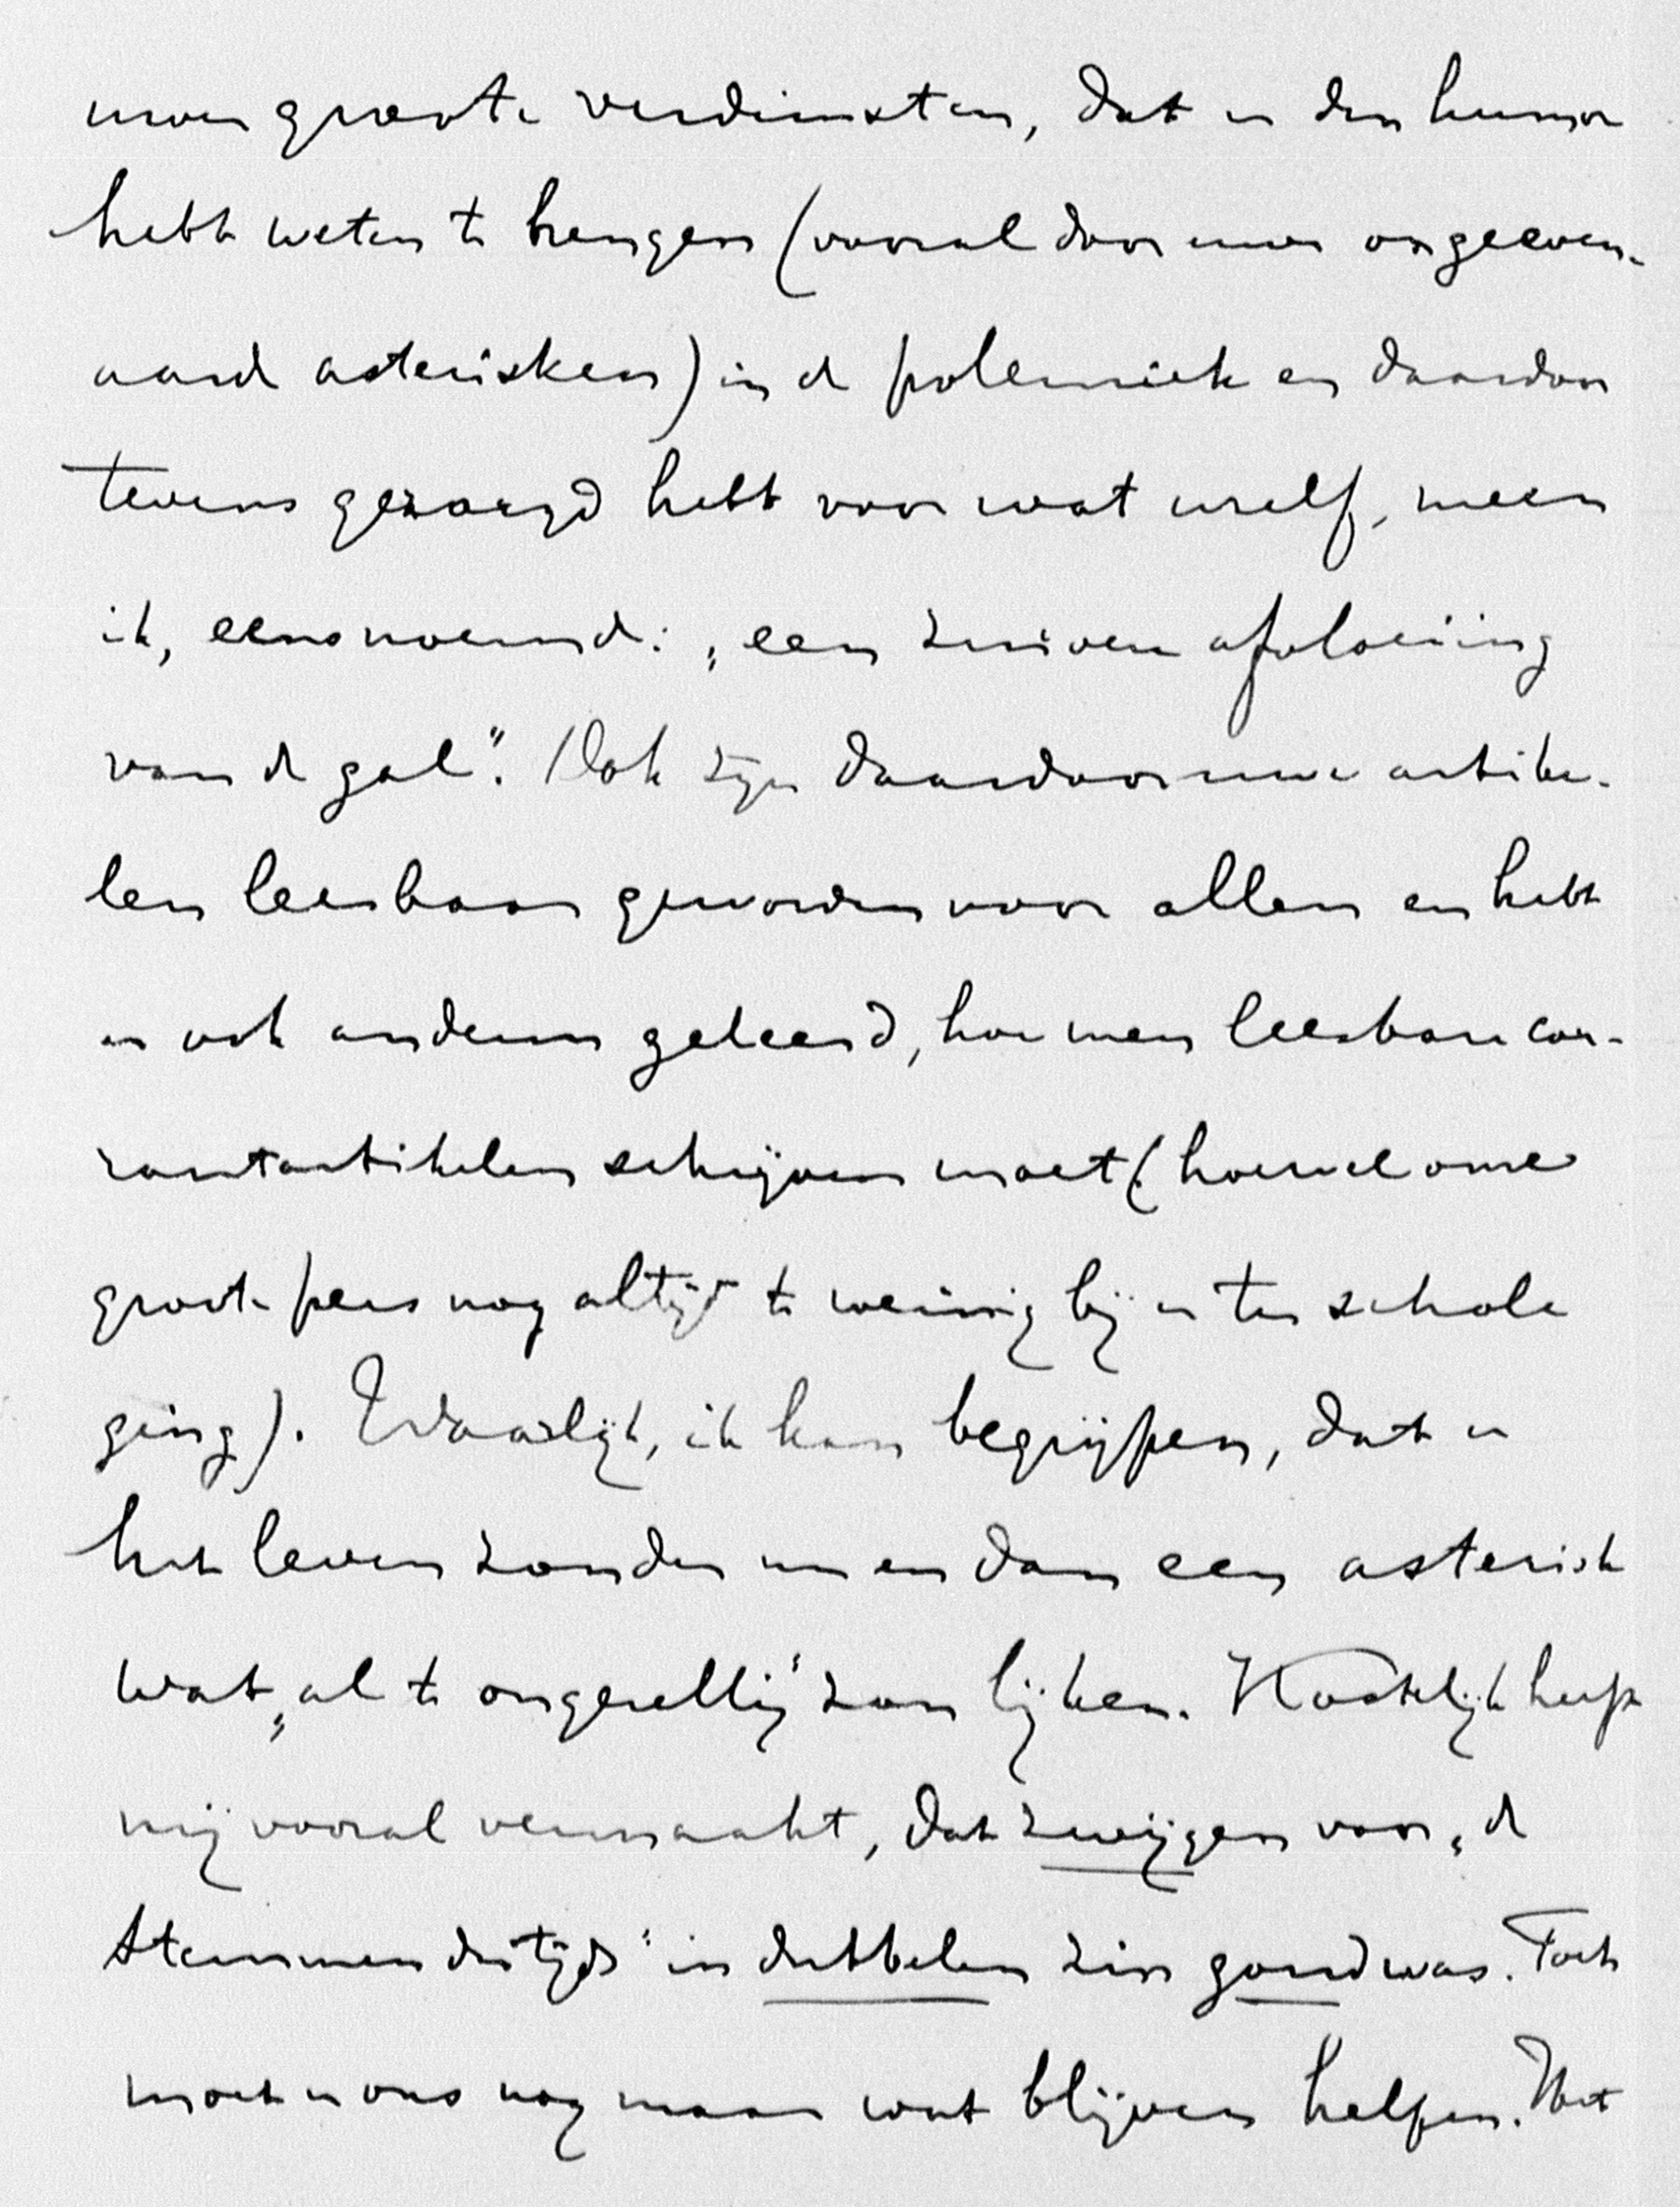 uwer groote verdiensten, dat u den humor
hebt weten te brengen (vooral door uwe ongeëven-
aarde asterisken) in de polemiek en daardoor
tevens gezorgd hebt voor wat uzelf, meen
ik, eens noemde: „een zuivere afvloeiing
van de gal”. Ook zijn daardoor uwe artike-
len leesbaar geworden voor allen en hebt
u ook anderen geleerd, hoe men leesbare cou-
rantartikelen schrijven moet (hoewel onze
groote pers nog altijd te weinig bij u ter schole
ging). Waarlijk, ik kan begrijpen, dat u
het leven zonder nu en dan een asterisk
wat „al te ongezellig” zou lijken. Kostelijk heeft
mij vooral vermaakt, dat zwijgen voor „de
Stemmen des tijds” in dubbelen zin goud was. Toch
moet u ons nog maar wat blijven helpen. Het